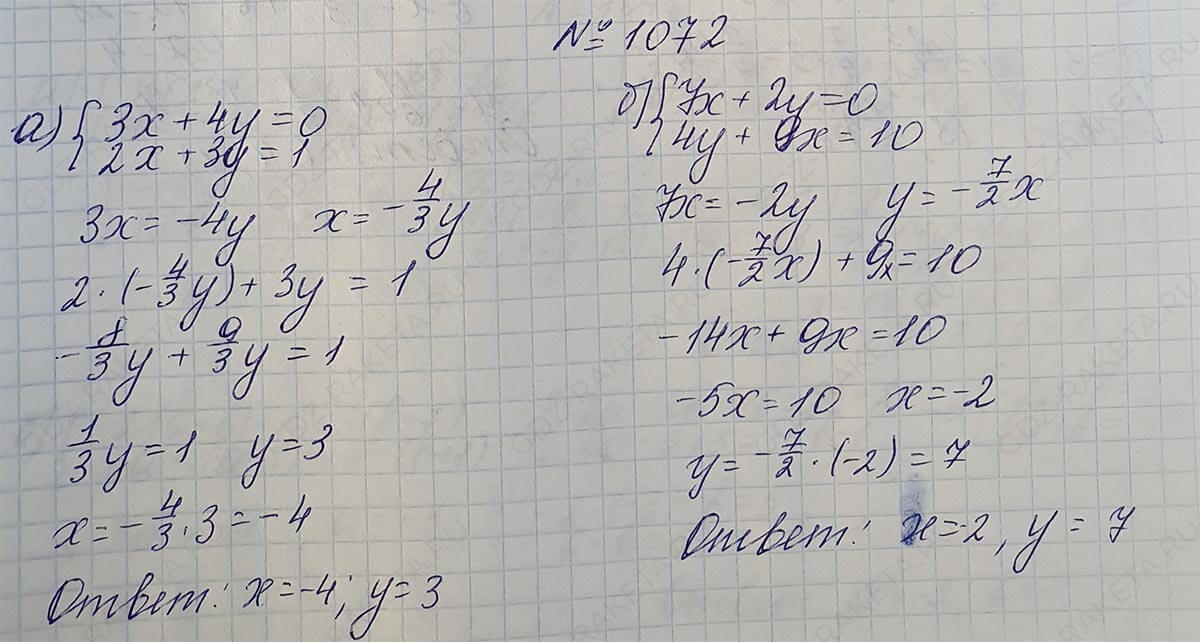 № 1072
а) { 3x + 4y = 0
2x + 3y = 1
3x = -4y x = -4/3 y
2 · (-4/3 y) + 3y = 1
-8/3 y + 9/3 y = 1
1/3 y = 1 y = 3
x = -4/3 · 3 = -4
Ответ: x = -4; y = 3
б) { 7x + 2y = 0
4y + 9x = 10
7x = -2y y = -7/2 x
4 · (-7/2 x) + 9x = 10
-14x + 9x = 10
-5x = 10 x = -2
y = -7/2 · (-2) = 7
Ответ: x = -2, y = 7